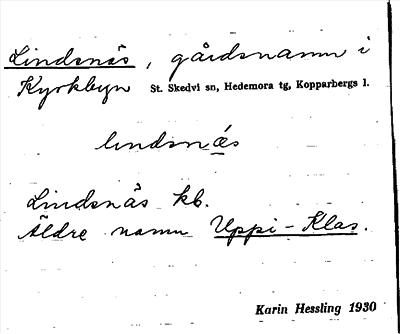 Lindsnäs, gårdsnamn i
Kyrkbyn St. Skedvi sn, Hedemora tg, Kopparbergs l.
lindsnäs
Lindsnäs kb.
Äldre namn Uppi-Klas.
Karin Hessling 1930